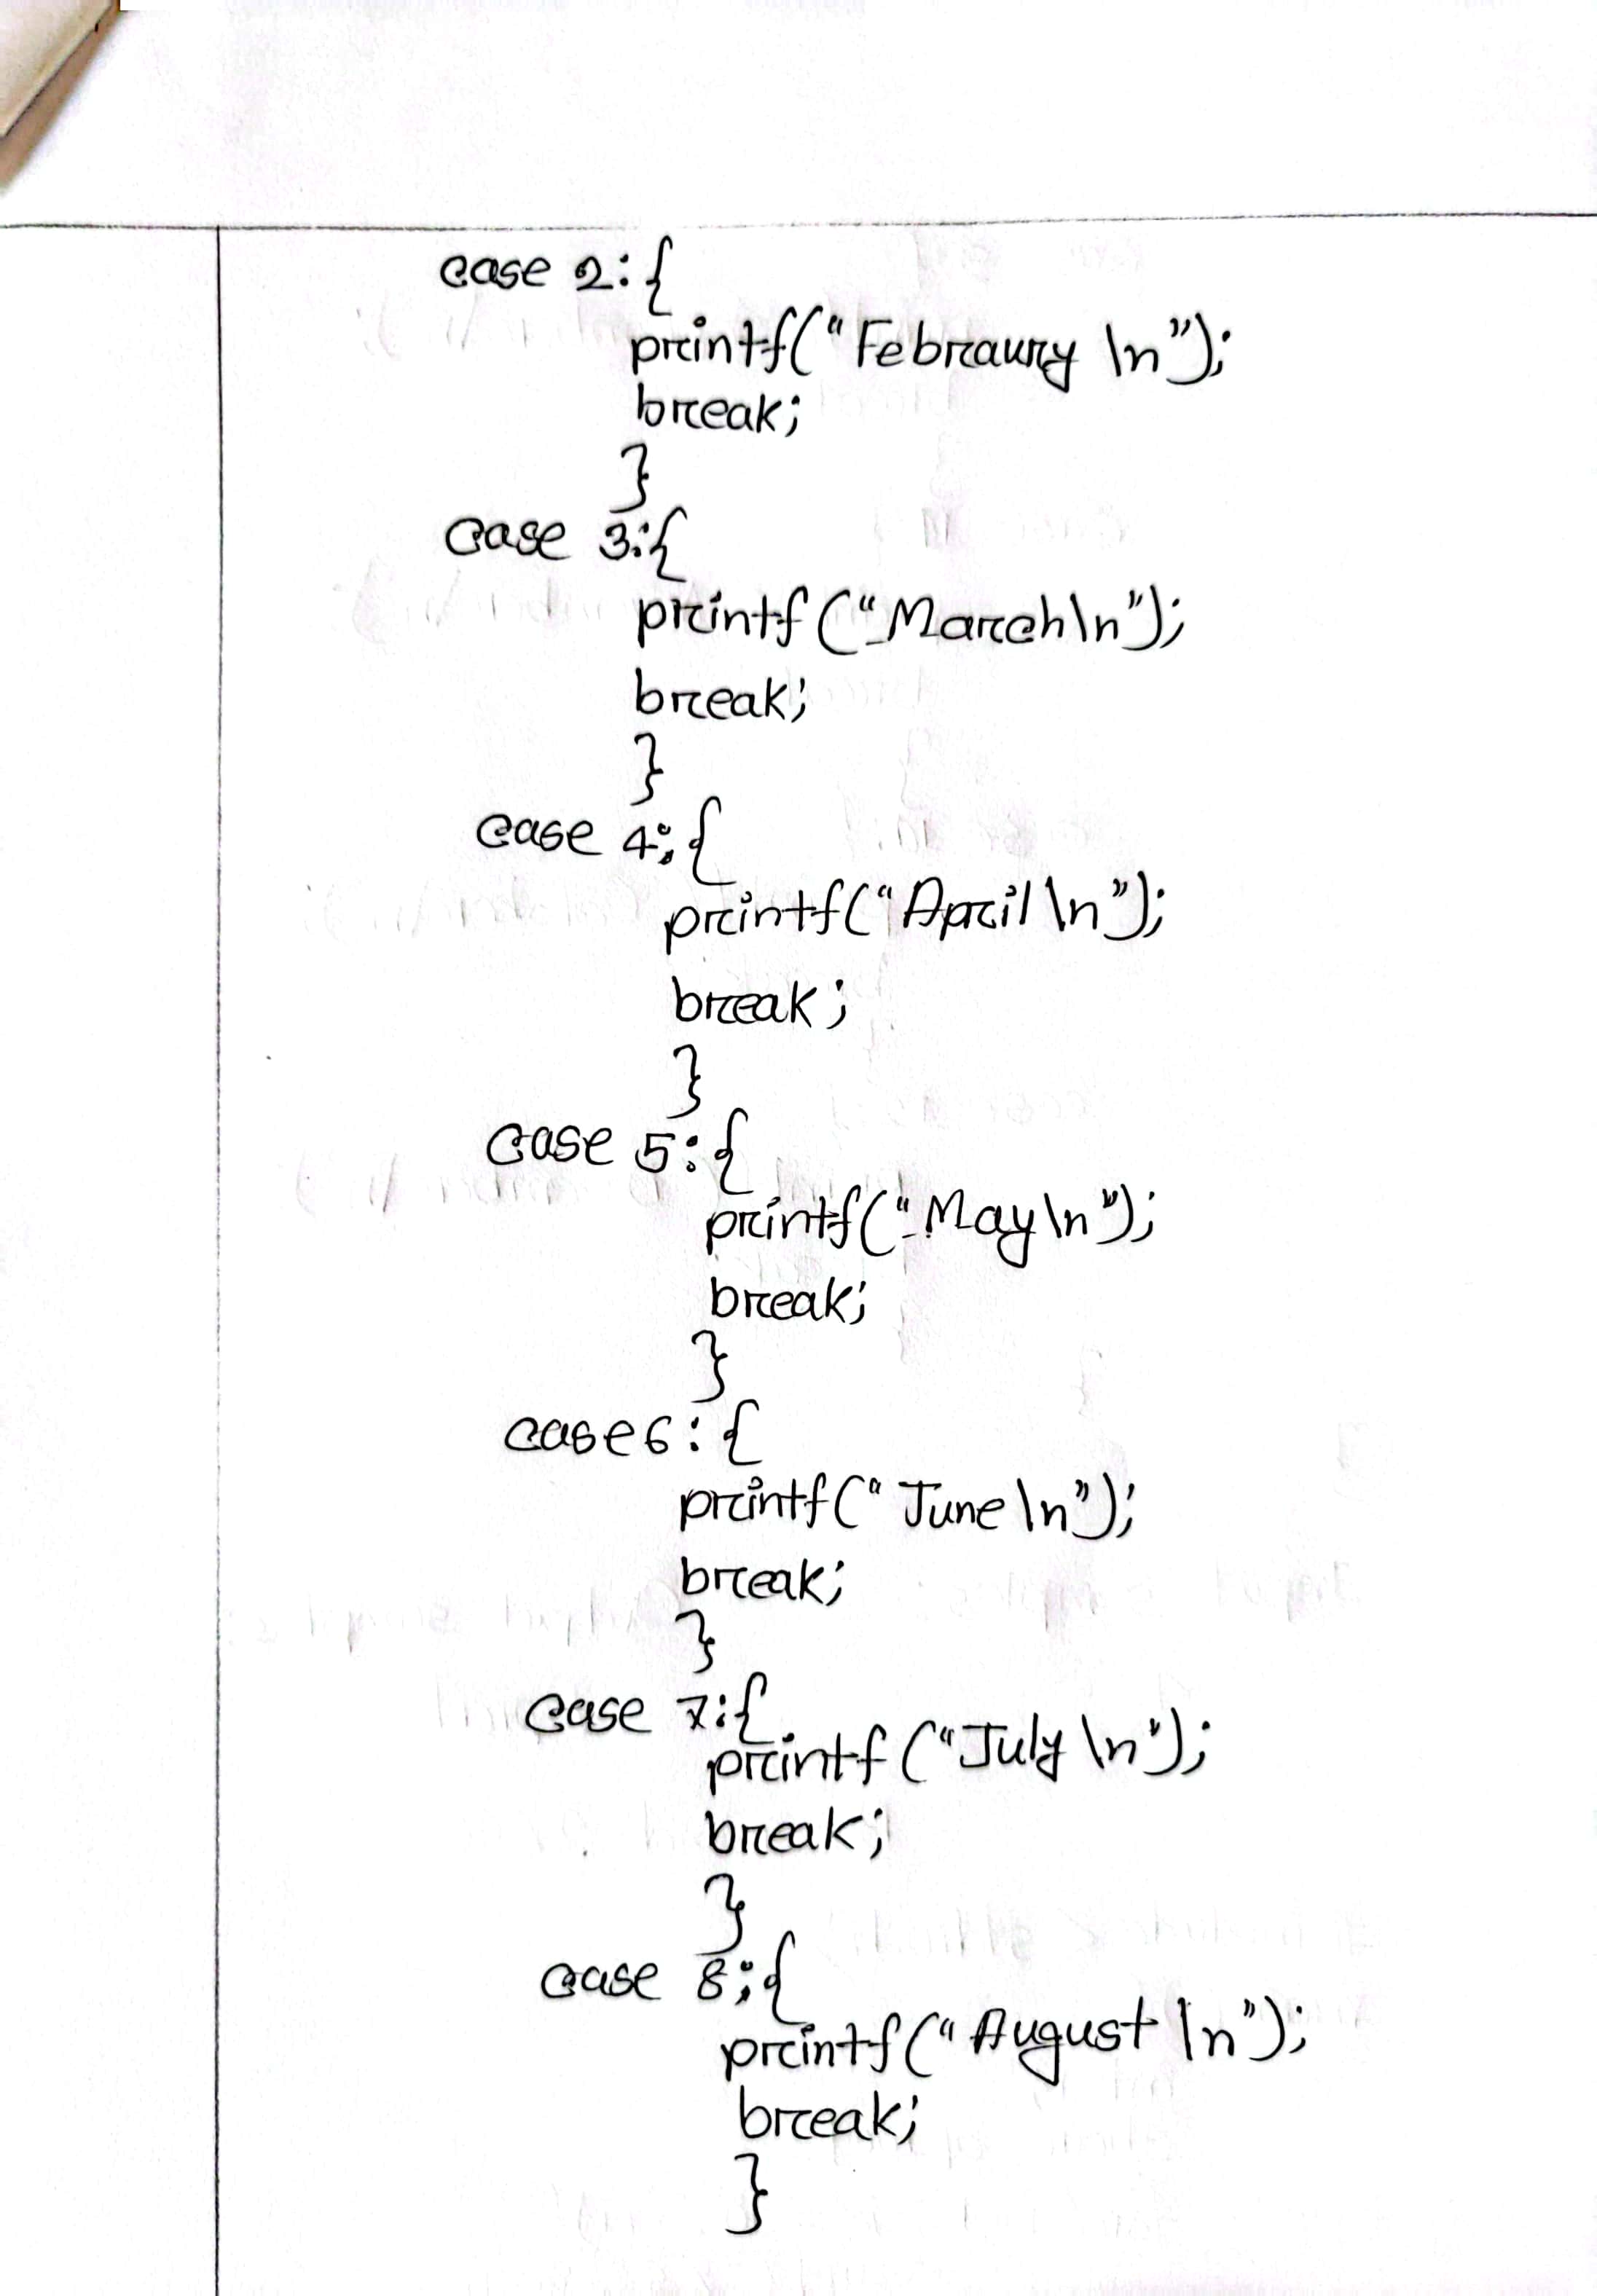 case 2:{
printf("Febraury \n");
break;
}
case 3:{
printf("March\n");
break;
}
case 4:{
printf("April \n");
break;
}
case 5:{
printf("May\n");
break;
}
case6:{
printf("June \n");
break;
}
case 7:{
printf("July \n");
break;
}
case 8;{
printf("August \n");
break;
}